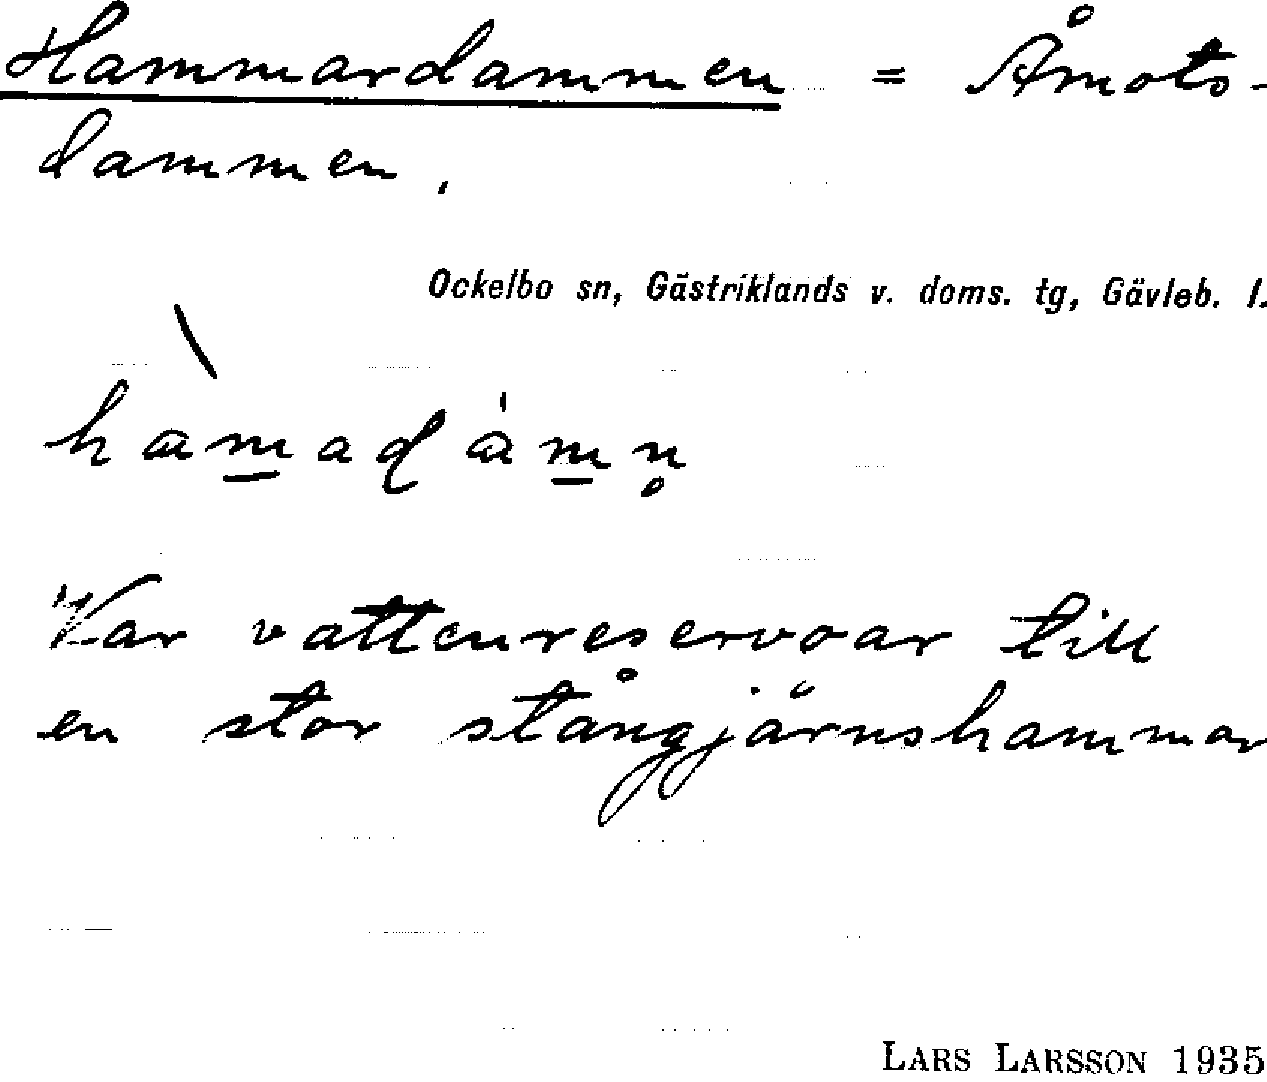 Hammardammen = Åmots-
dammen.
Ockelbo sn, Gästriklands v. doms. tg, Gävleb. l.
hàm̲adám̲n̥
Var vattenreservoar till
en stor stångjärnshammar
LARS LARSSON 1935